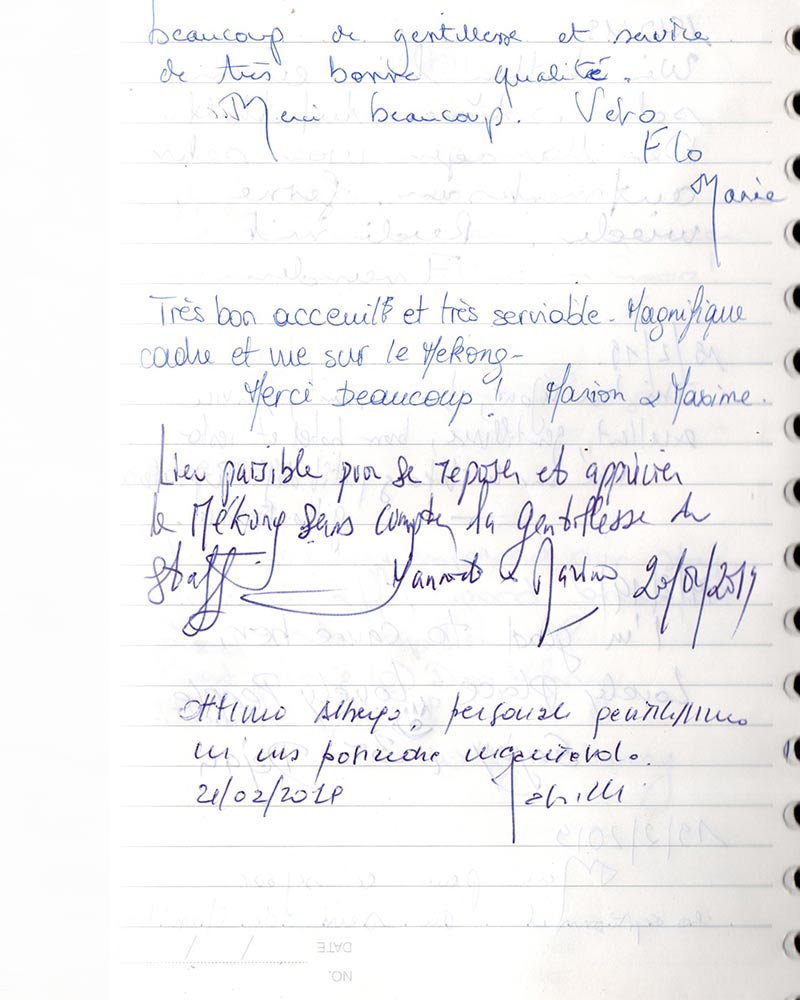 beaucoup de gentillesse et service
de très bonne qualité.
Merci beaucoup. Vero
Flo
Marie
Très bon acceuil et très serviable. Magnifique
cadre et vue sur le Mekong-
Merci beaucoup ! Marion & Maxime.
Lieu paisible pour se reposer et apprécier
le Mékong sans compter la gentillesse du
staff. & 20/02/2019
Ottimo Albergo, personale gentilissimo
in una posizione incantevole.
21/02/2019
DATE
NO.